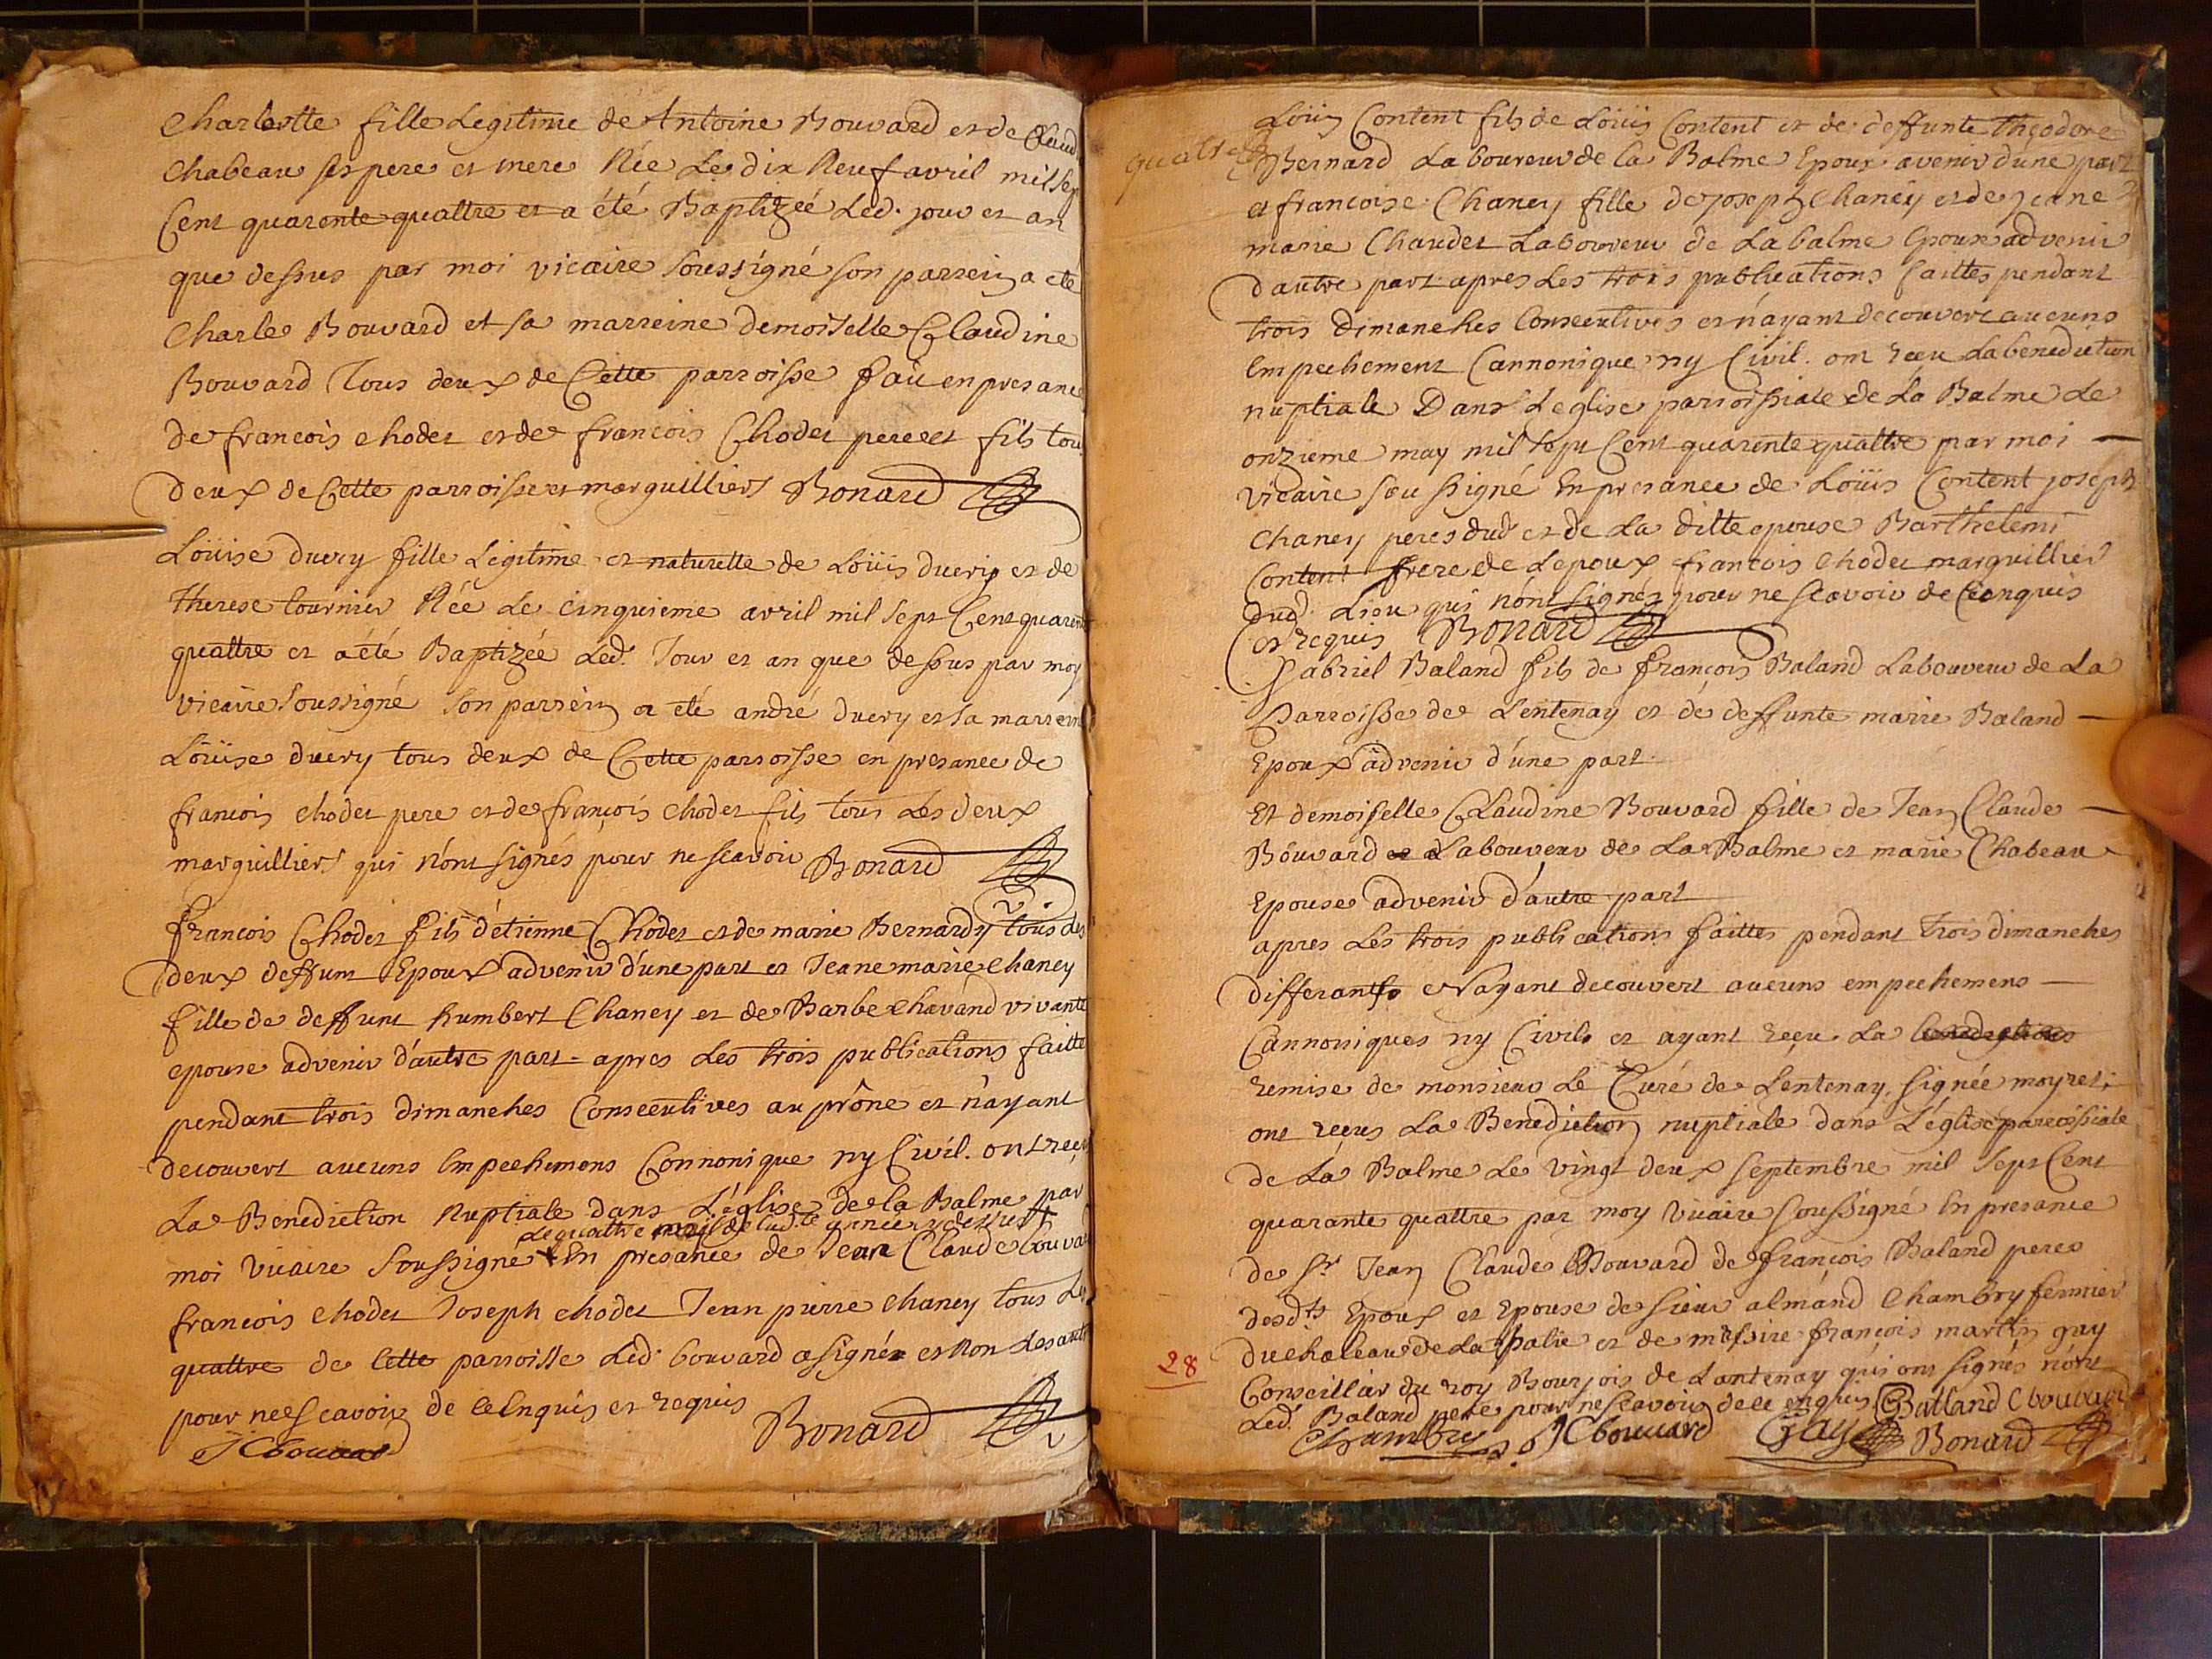 Charlotte fille Legitime de Antoine Bouvard et de Claud
Chabeau ses pere et mere Née Le dix Neuf avril mil sep
Cent quarente quattre et a été Baptizéé Led. jour et an
que dessus par moi vicaire soussigné son parrein a eté
Charle Bouvard et sa marreine demoiselle Claudine
Bouvard Tous deux de Cette parroisse fait en presance
de francois chodet et de francois Chodet pere et fils tou
deux de Cette parroisse et marguilliers Bonard
Loüise duery fille Legitime et naturelle de Loüis duery et de
Therese tournier Née Le cinquieme avril mil sept Cent quarent
quattre et a été Baptizée Led. Jour et an que dessus par moy
vicaire soussigné son parrein a été andré duery et sa marrein
Loüise duery tous deux de Cette parroisse en presance de
francois chodet pere et de françois chodet fils tous Les deux
marguilliers qui n'ont signés pour ne scavoir Bonard
francois Chodet fils d'étienne Chodet et de marie Bernardy tous les
deux deffunt Epoux advenir d'une part et Jeane marie chaney
fille de deffunt humbert Chaney et de Barbe chavand vivante
epouse advenir d'autre part apres Les trois publications faitte
pendant trois dimanches Consecutives au prône et n'ayant
decouvert aucuns Empechemens Connonique ny Civil. ont reçu
La Benediction Nuptiale dans L'église de la Balme par
Le quattre may de ladte année
moi vicaire soussigné En presance de Jean Claude bouva
francois chodet Joseph chodet Jean pierre chaney tous Les
quattre de Cette parroisse Led. bouvard a signé et Non Les autr
pour ne scavoir de ce Enquis et requis
JCbouvard Bonard
quatre
Loüis Content fils de Loüis Content et de deffunte Theodore
Bernard Laboureur de la Balme Epoux avenir d'une part
et francoise Chaney fille de joseph Chaney et de jeane
marie Chaudet Laboureur de La balme Epouse advenir
d'autre part apres Les trois publications faittes pendant
trois Dimanches Consecutives et n'ayant decouvert aucuns
Empechement Cannonique ny Civil. ont reçu La benediction
nuptiale Dans L'eglise parroissiale de La Balme Le
onzieme may mil sept Cent quarente quattre par moi
vicaire sousigné En presance de Loüis Content joseph
Chaney peres dud. et de La ditte epouse Barthelemi
Content frere de L'epoux francois chodet marguillier
dud. Lieu qui n'ont signés pour ne scavoir de ce enquis
et requis Bonard
Gabriel Baland fils de françois Baland Laboureur de La
Parroisse de Lentenay et de deffunte marie Baland
Epoux advenir d'une part
Et demoiselle Claudine Bouvard fille de Jean Claude
Bouvard Laboureur de La Balme et marie Chabeau
Epouse advenir d'autre part
apres Les trois publications faittes pendant trois dimanches
differants et N'ayant decouvert aucuns empechemens
Cannoniques ny Civils et ayant reçu La
remise de monsieur Le Curé de Lentenay signée moyret
ont reçus La Benediction nuptiale dans L'église parroissiale
de La Balme Le vingt deux septembre mil sept Cent
quarante quattre par moy vicaire soussigné En presance
de Sr Jean Claude Bouvard de françois Baland peres
desdts Epoux et Epouse de sieur almand Chambry fermier
du chateau de La et de messire françois martin gay
28
Conseiller du roy Bourjois de Lantenay qui ont signés non
Led. Baland pere pour ne scavoir de ce enquis GBalland Cbouvard
Chambry JCbouvard Gay Bonard